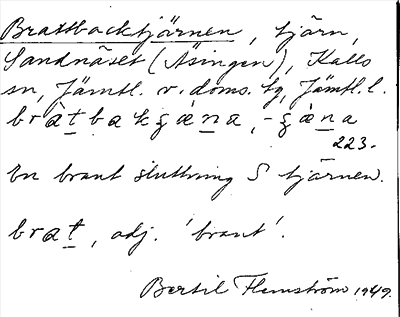 Brattbacktjärnen, tjärn,
Sandnäset (Äsingen), Kalls
sn, Jämtl. v. doms. tg, Jämtl. l.
brat bak, -na
223.
En brant sluttning S tjärnen.
brat, adj. 'brant'.
Bertil Flemström 1949.